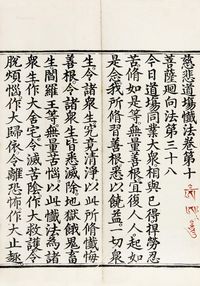 慈悲道場懺法卷第十
菩薩迴向法第三十八
今日道場同業大衆相與已得捍勞忍
苦修如是等無量善根宜復人人起如
是念我所修習善根悉以饒益一切衆
生令諸衆生究竟清淨以此所修懺悔
善根令諸衆生皆悉滅除地獄餓鬼畜
生閻羅王等無量苦惱以此懺法為諸
衆生作大舍宅令滅苦陰作大救護令
脫煩惱作大歸依令離恐怖作大止趣